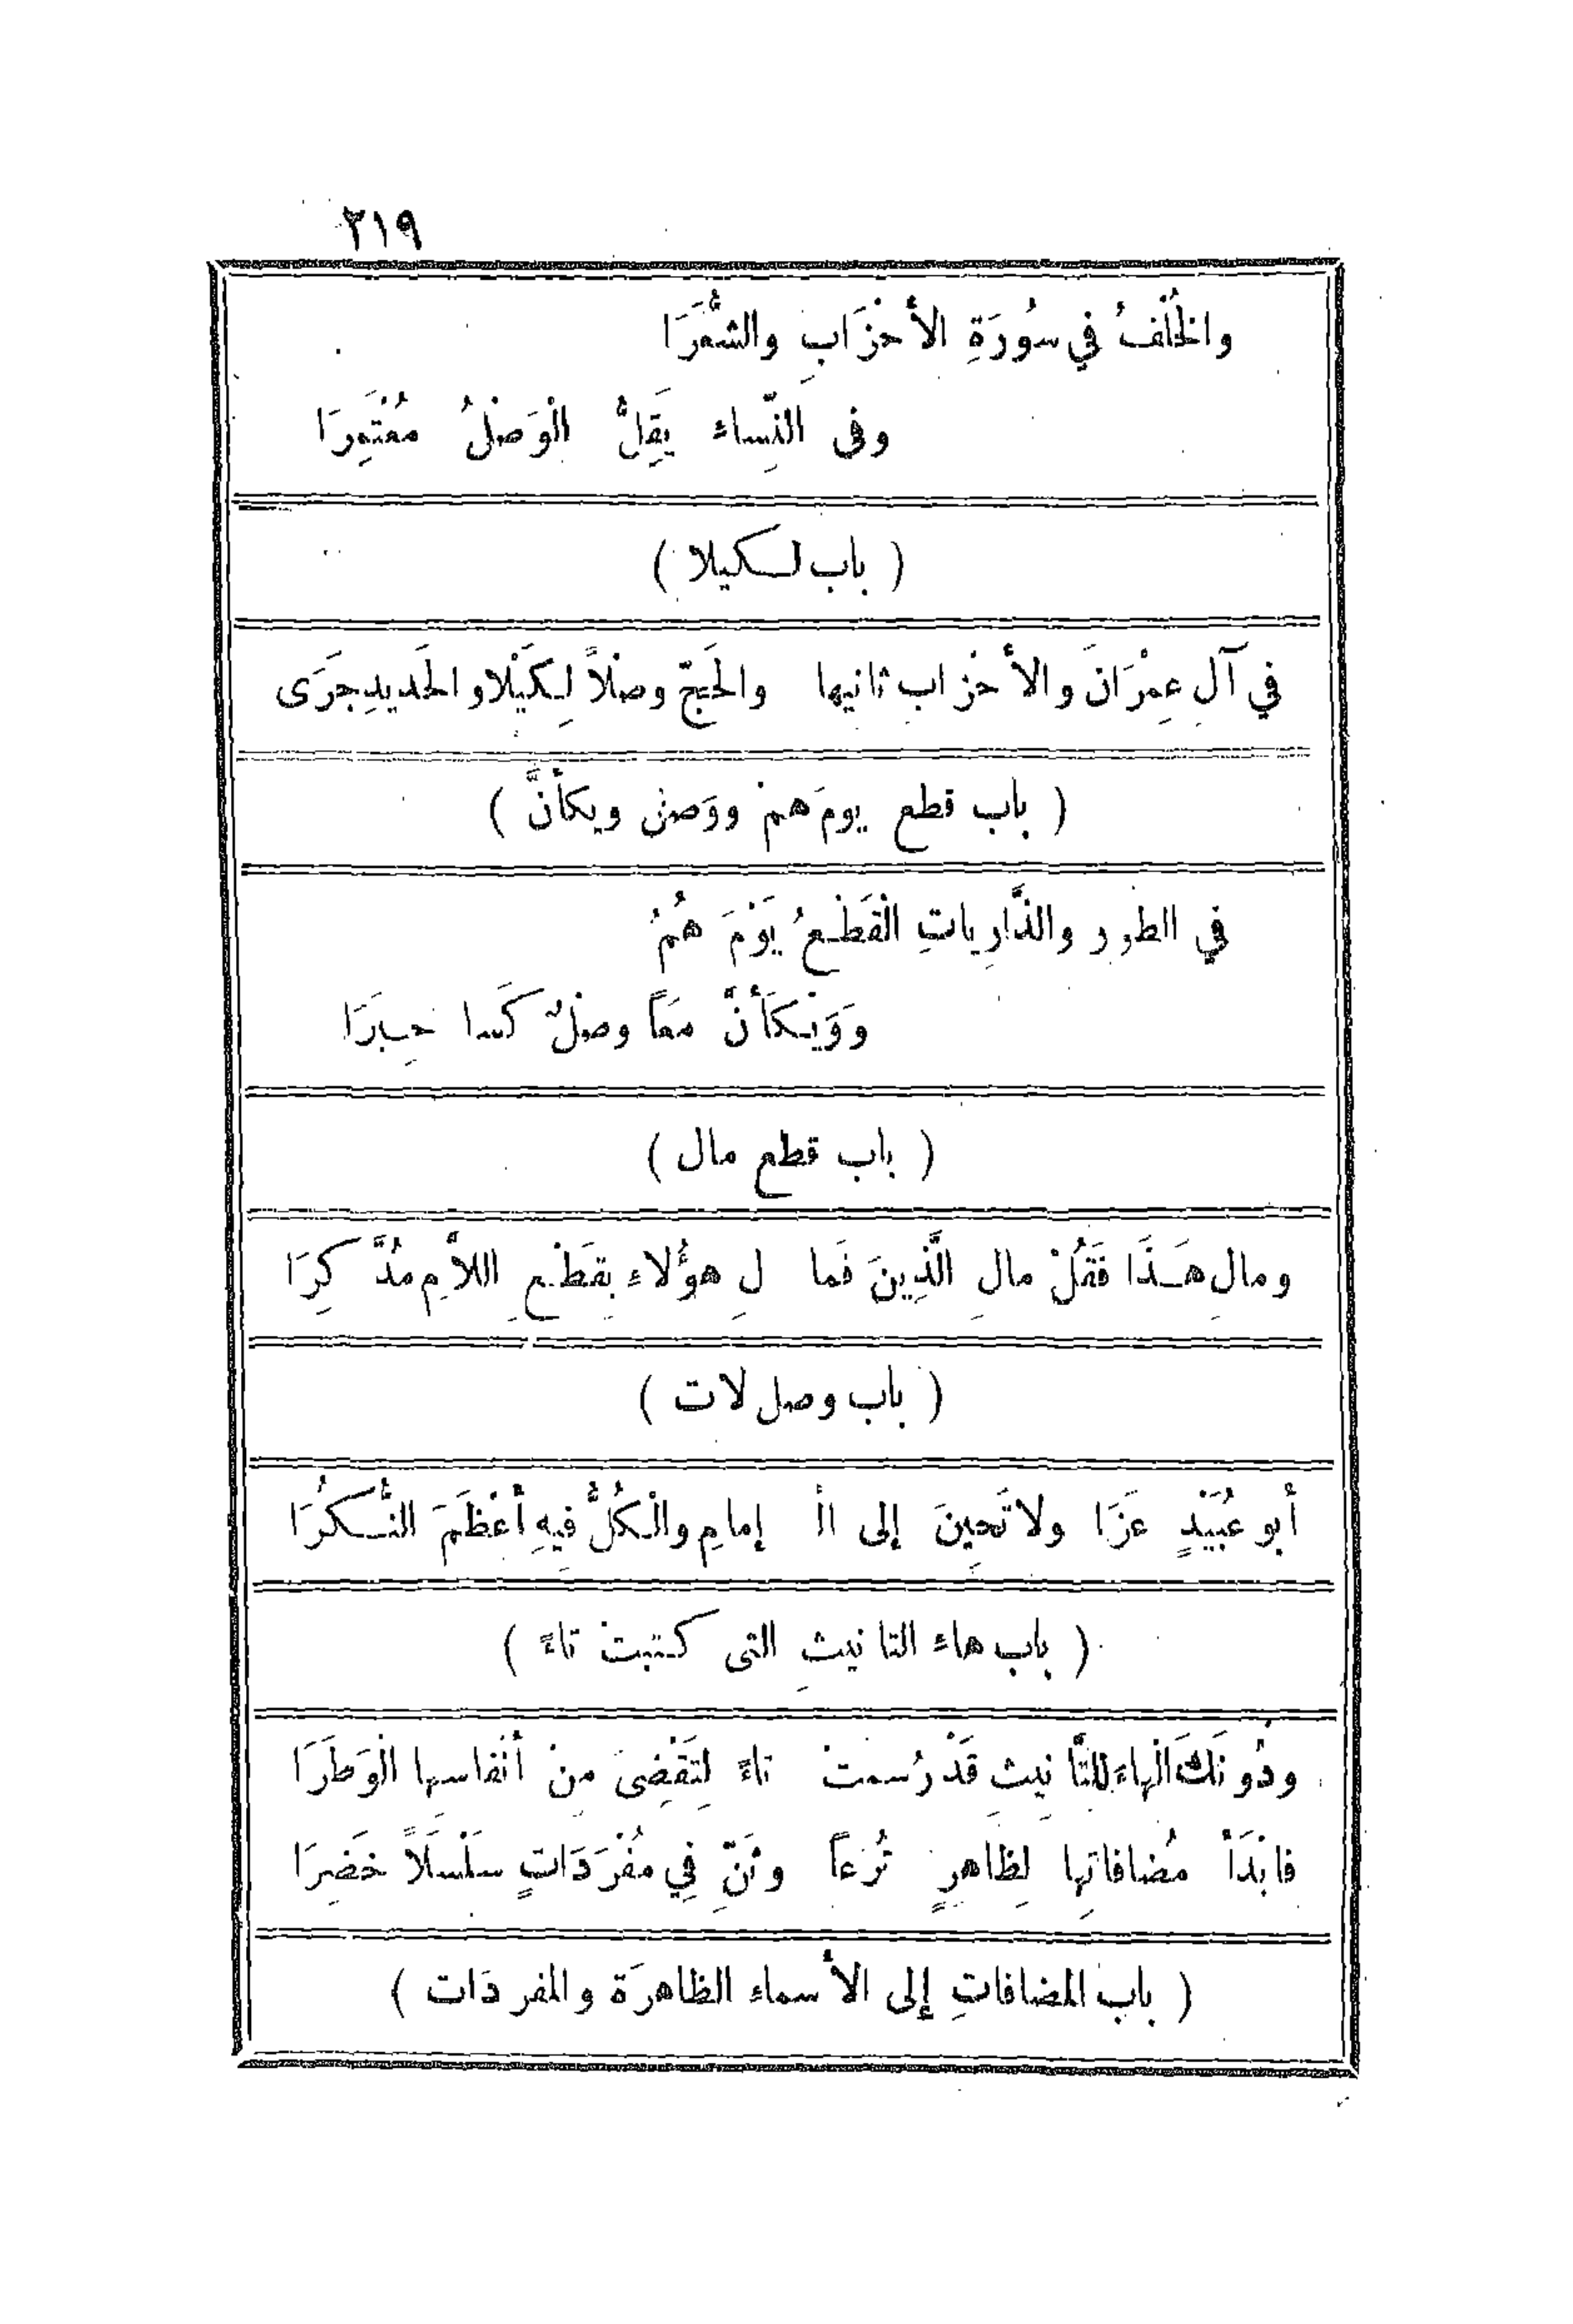 ٢١٩
والخُلْفُ في سُورَةِ الأحْزَابِ والشُّعَرَا
وفى النِّساء يَقِلُّ الْوَصْلُ مُعْتَمِرَا
( باب لكيلا )
في آلِ عِمْرَانَ والأحْزابِ ثانيها والحَجّ وصْلاً لِكَيْلا والحَديدِ جَرَى
( باب قطع يومَ همْ ووَصلِ ويكأنَّ )
في الطور والذَّارِياتِ الْقَطْعُ يَوْمَ هُمُ
وَوَيْكَأَنَّ مَعاً وصْلٌ كَسا حِبَرَا
( باب قطع مال )
ومالِ هَذَا فَقُلْ مالِ الَّذِينَ فَما لِ هؤُلاءِ بِقَطْعِ اللاَّمِ مُدَّكِرَا
( باب وصل لات )
أبو عُبَيْدٍ عَزَا ولا تَحِينَ إلى الْ إمامِ والْكُلُّ فيهِ أعْظَمَ النُّكُرَا
( باب هاء التانيثِ التى كتبتْ تاءً )
ودُونَكَ الْهاءَ للتَّأنِيثِ قَدْ رُسمتْ تاءً لِتَقْضِىَ مِنْ أنْفاسِها الْوَطَرَا
فابْدَأْ مُضافاتِها لِظاهِرٍ تُرَعاً وثَنِّ فِي مُفْرَدَاتٍ سَلْسَلاً خَضِرَا
( باب المضافاتِ إلى الأسماء الظاهرَة والمفردَات )